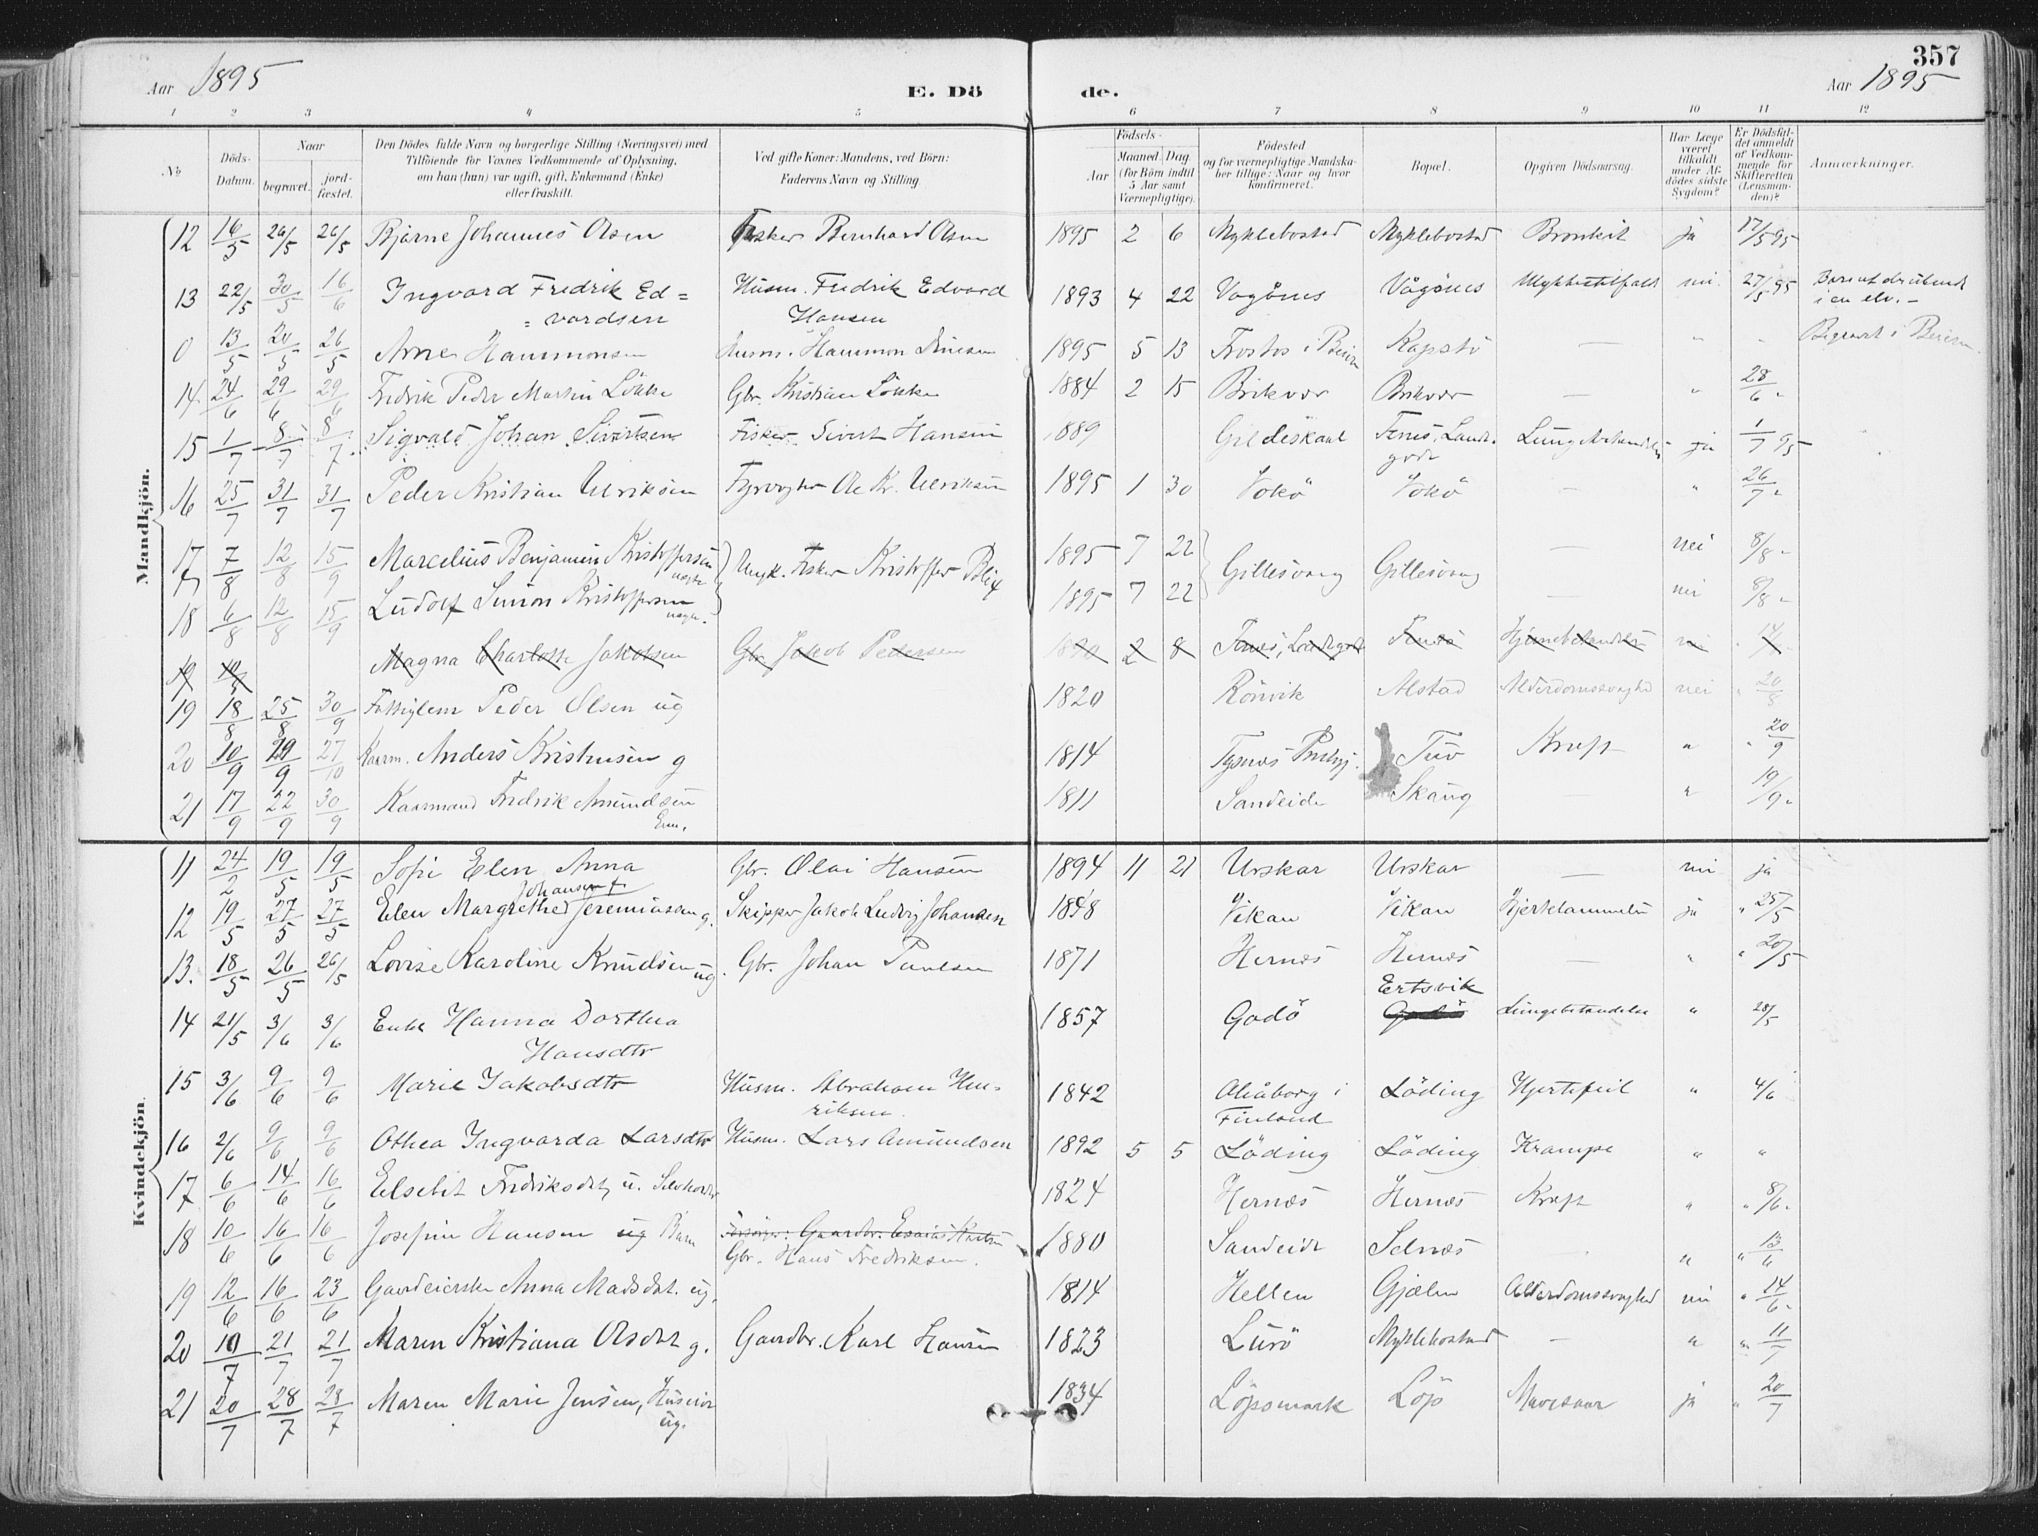 357
Aar 1895
E. Dö de.
Aar 1895
1 2 3 4 5 6 7 8 9 10 11 12
No
Döds-Datum.
Naar
begravet.
jord-fæstet.
Den Dödes fulde Navn og borgerlige Stilling (Næringsvei) med
Tilföiende for Voxnes Vedkommende af Oplysning,
om han (hun) var ugift, gift, Enkemand (Enke)
eller fraskilt.
Ved gifte Koner: Mandens, ved Börn:
Faderens Navn og Stilling.
Födsels-
Aar
Maaned. Dag
(for Börn indtil
5 Aar samt
Værnepligtige).
Födested
og for værnepligtige Mandska-
ber tillige: Naar og hvor
konfirmeret.
Bopæl.
Opgiven Dödsaarsag.
Har Læge
været
tilkaldt
under Af-
dödes sidste
Sygdom?
Er Dödsfal-
det anmeldt
af Vedkom-
mende for
Skifteretten
(Lensman-
den)?
Anmærkninger.
Mandkjön.
12 16/5 26/5 26/5 Bjarne Johannes Olsen Fisker Bernhard Olsen 1895 2 6 Myklebostad Myklebostad Bronkit ja 17/5 95
13 22/5 30/5 16/6 Ingvard Fredrik Ed= Husm. Fredrik Edvard 1893 4 22 Vågönes Vågönes nei 27/5 95
= vardsen Hansen i en elv. –
0 13/5 20/5 26/5 Arne Hammonsen Husm. Hammon 1895 5 13 i Beiern Kapstö — " " Begravet i Beiern
14 24/6 29/6 29/6 Fredrik Peder Martin Lökke Gbr. Kristian Lökke 1884 2 15 Brikvær Brikvær — " 28/6 "
15 1/7 8/7 8/7 Sigvald Johan Sivertsen Fisker Sivert Hansen 1889 Gildeskaal Fenes, Landegode ja 1/7 95
16 25/7 31/7 31/7 Peder Kristian Ulriksen Fyrvogter Ole Kr. Ulriksen 1895 1 30 Vokö Vokö — " 26/7 "
17 7/8 12/8 15/9 Marcelius Benjamin Kristoffersen uægte Ungk. Fisker Kristoffer Blix 1895 7 22 Gillesvaag Gillesvaag — nei 8/8 "
18 6/8 12/8 15/9 Ludolf Simon Kristoffersen uægte. 1895 7 22 — nei 8/8 "
19 Magna Charlotte Jakobsen Gbr. Jakob Pedersen 1890 2 8 Fenes, Landegode Fenes Hjernebetændelse nei
19 18/8 25/8 30/9 Fattiglem Peder Olsen ug 1820 Rönvik Alstad Alderdomssvaghed nei " 20/8
20 10/9 29/9 27/10 Kaarm. Anders Kristensen g 1814 Tysnæs Tuv Kræft " " 20/9
21 17/9 22/9 30/9 Kaarmand Fredrik Amundsen Enm. 1811 Sandeide Skaug — " 19/9 "
Kvindekjön.
11 24/2 19/5 19/5 Sofie Elen Anna Gbr. Olai Hansen 1894 11 21 Urskar Urskar — nei ja
Johansen f.
12 19/5 27/5 27/5 Elen Margrethe Jeremiassen g. Skipper Jakob Ludvig Johansen 1848 Vikan Vikan Hjertelammelse ja " 25/5
13. 18/5 26/5 26/5 Lovise Karoline Knudsen ug. Gbr. Johan Paulsen 1871 Hernæs Hernæs — " " 20/5
Ertsvik
14 21/5 3/6 3/6 Enke Hanna Dorthea 1857 Godö Godö Lungebetændelse " 28/5
Hansdtr
15 3/6 9/6 9/6 Marie Jakobsdtr Husm. Abraham Hen- 1842 i Löding Hjertefeil " 4/6
riksen. Finland
16 2/6 9/6 9/6 Othea Ingvarda Larsdtr Husm. Lars Amundsen 1892 5 5 Löding Löding Krampe " "
17 6/6 14/6 16/6 Elsebet Fredriksdtr, u. 1824 Hernæs Hernæs Kræft " " 8/6 "
18 10/6 16/6 16/6 Josefine Hansen ug Barn Forsörger: Gaardbr. Esaias 1880 Sandeide Selnæs " " 13/6
Gbr. Hans Fredriksen.
19 12/6 16/6 23/6 Gaardeierske Anna Madsdtr. ug. 1814 Hellen Gjælen Alderdomssvaghed nei " 14/6 "
20 10/7 21/7 21/7 Maren Kristiana Olsdtr g. Gaardbr. Karl Hansen 1823 Lurö Myklebostad — " " 11/7
21 20/7 28/7 28/7 Maren Marie Jensen, ug. 1834 Löpsmark Löp Mavesaar ja " 20/7